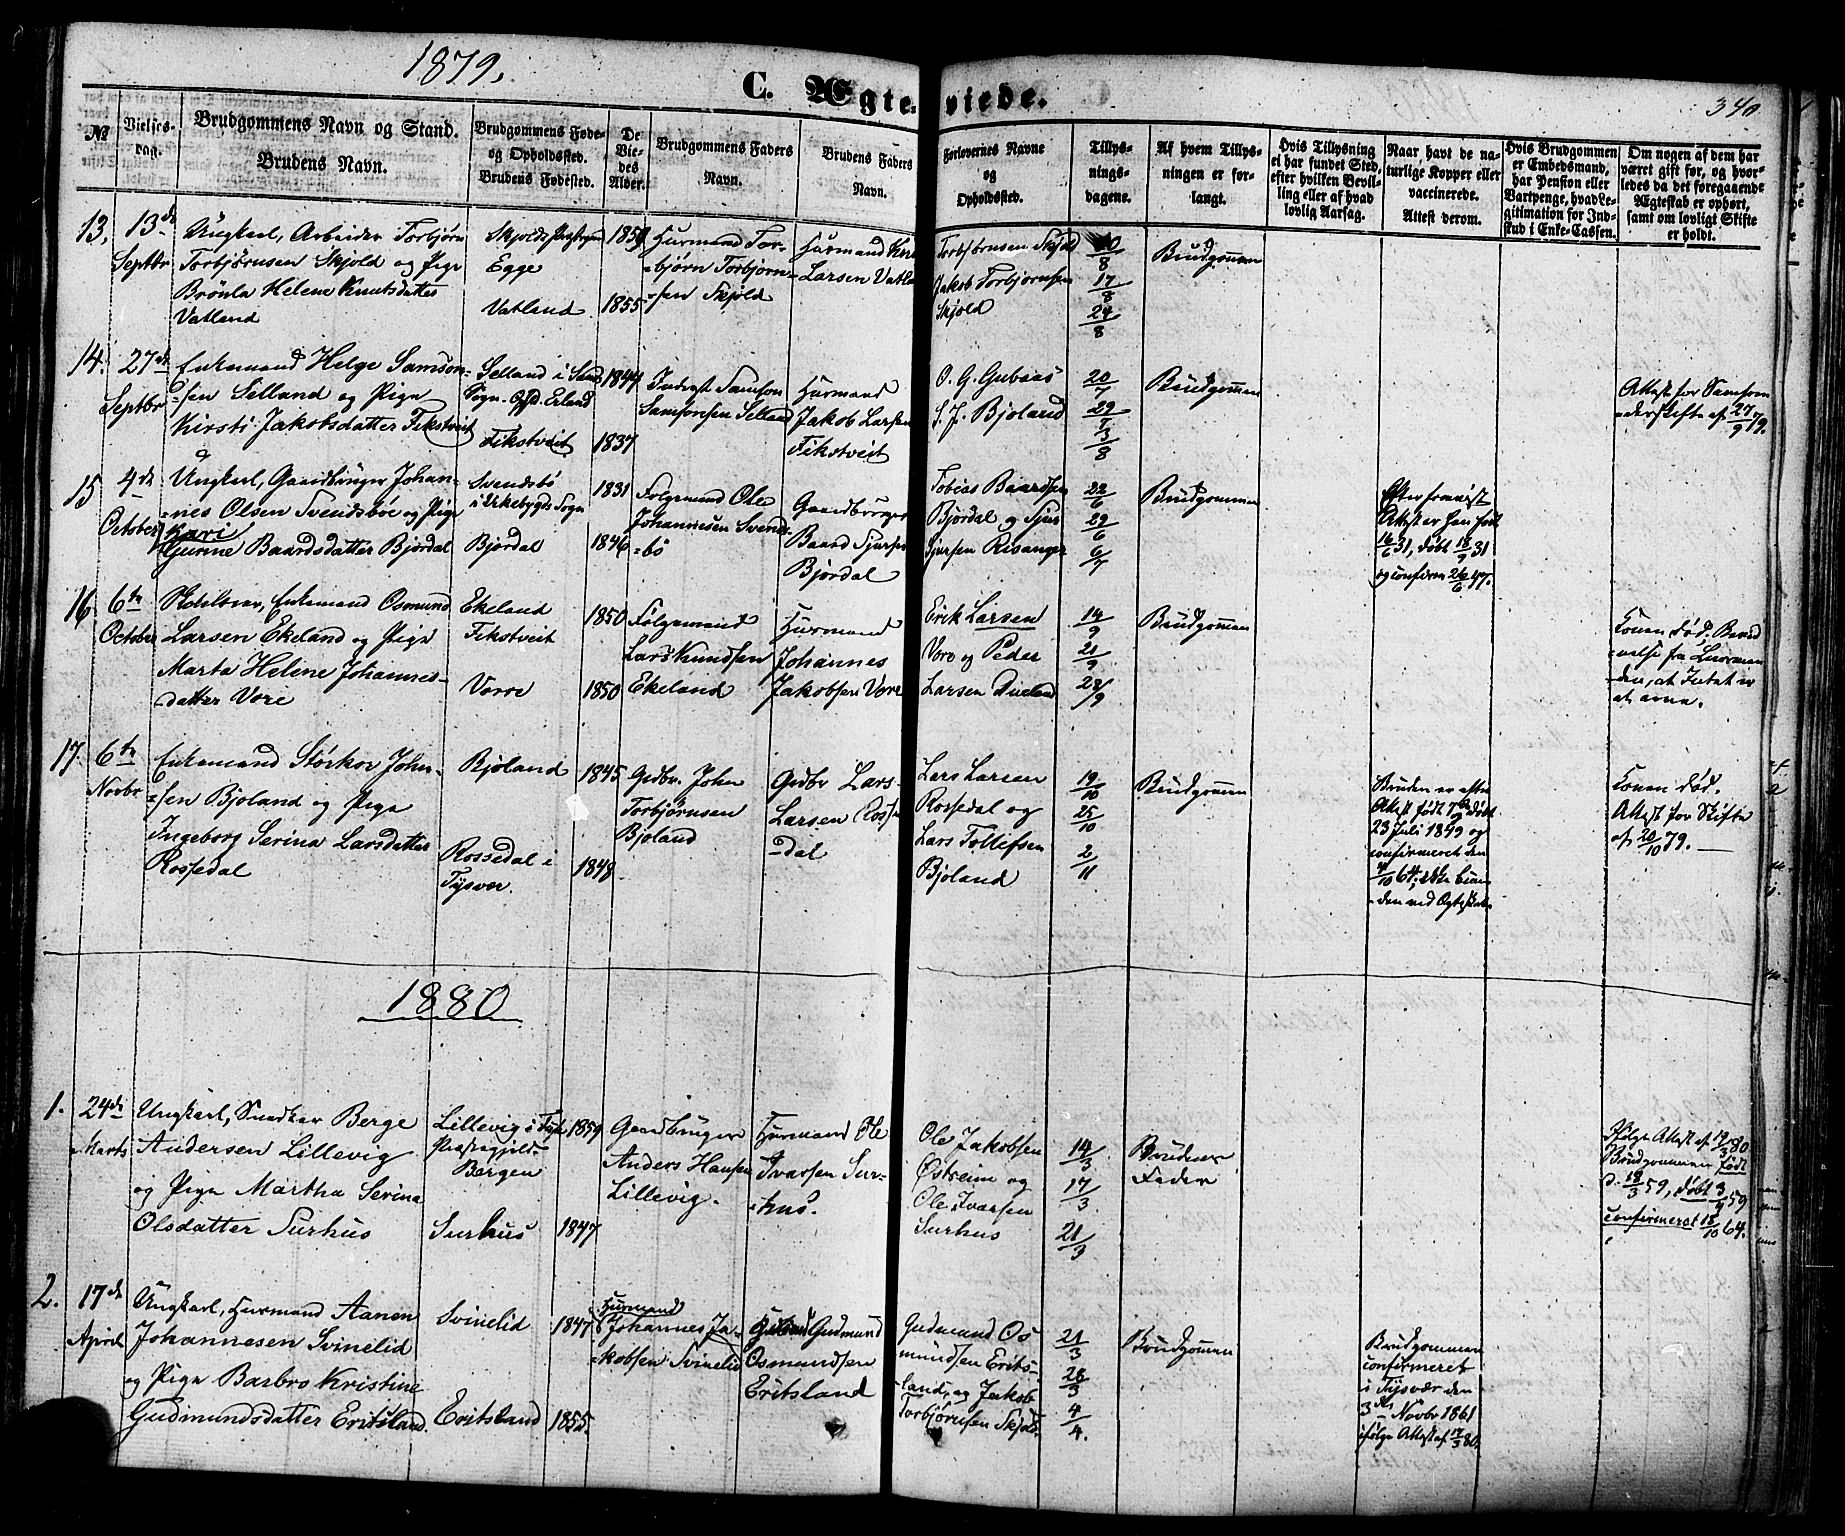 1879.
C. Ægteviede.
340
№
Vielses-
dag.
Brudgommens Navn og Stand.
Brudens Navn.
Brudgommens Føde-
og Opholdssted.
Brudens Fødested.
De
Vie-
des
Alder.
Brudgommens Faders
Navn.
Brudens Faders
Navn.
Forlovernes Navne
og
Opholdssted.
Tillys-
nings-
dagene.
Af hvem Tillys-
ningen er for-
langt.
Hvis Tillysning
ei har fundet Sted,
efter hvilken Bevil-
ling eller af hvad
lovlig Aarsag.
Naar havt de na-
turlige Kopper eller
vaccinerede.
Attest derom.
Hvis Brudgommen
er Embedsmand,
har Pension eller
Vartpenge, hvad Le-
gitimation for Ind-
skud i Enke-Cassen.
Om nogen af dem har
været gift før, og hvor-
ledes da det foregaaende
Ægteskab er ophørt,
samt om lovligt Skifte
er holdt.
13.
13de
Septbr
Ungkarl, Arbeider Torbjørn
Torbjørnsen Skjold og Pige
Brönla Helene Knutsdatter
Vatland
Skjolds Præstegjeld
Egge
Vatland
1855
Huusmand Tor-
=bjørn Torbjørn-
=sen Skjold
Huusmand Knut
Larsen Vatland
Torbjørnsen Skjold
Jakob Torbjørnsen
Skjold
10/8
17/8
24/8
Brudgommen
14.
27de
Septbr
Enkemand Helge Samson-
=sen Selland og Pige
Kirsti Jakobsdatter Fikstveit
Selland i Sands
Sogn. Opst. Erland
Fikstveit
1844
1837
Inderst Samson
Samsonsen Selland
Huusmand
Jakob Larsen
Fikstveit
O. G. Gubaas
S. J. Bjoland
20/7
29/7
3/8
Brudgommen
Attest for Samfren-
=derskifte af 27/9 79.
15
4de
October
Ungkarl, Gaardbruger Johan-
=nes Olsen Svendsbøe og Pige
Kari
Gurine Baardsdatter Bjordal
Svendsbö
i Urkebygds Sogn
Bjordal
1831
1846
Folgemand Ole
Johannesen Svends-
=bö
Gaardbruger
Baard Sjursen
Bjordal
Tobias Baardsen
Bjordal og Sjur
Sjursen Risanger
22/6
29/6
6/7
Brudgommen
Efter foreviist
Attest er han født
16/6 31, døbt 18/9 31
og confirm 26/6 47.
16
6te
October
Skoleholder, Enkemand Osmund
Larsen Ekeland og Pige
Marta Helene Johannes-
datter Vore
Ekeland
Fikstveit
Vorre
1850
1850
Følgemand
Lars Knudsen
Ekeland
Huusmand
Johannes
Jakobsen Vore
Erik Larsen
Vore og Peder
Larsen Dueland
14/9
21/9
28/9
Brudgommen
Konen død. Bevid-
=nelse fra Lensman-
=den, at Intet er
at arve.
17.
6te
Novbr
Enkemand Størkor John-
=sen Bjoland og Pige
Ingeborg Serina Larsdatter
Rossedal
Bjoland
Rossedal i
Tysvær
1845
1848
Grdbr. John
Torbjørnsen
Bjoland
Grdbr Lars
Larsen Rosse-
=dal
Lars Larsen
Rossedal og
Lars Tollefsen
Bjoland
19/10
25/10
2/11
Brudgommen
Bruden er efter
Attest født 7/6 døbt
23 Juli 1849 og
confirmeret den
4/10 64,
=den ved Ægteskab.
Konen død.
Attest for Skifte
af 20/10 79.
1880
1.
24de
Marts
Ungkarl, Snedker Berge
Andersen Lillevig
og Pige Martha Serina
Olsdatter Surhus
Lillevig i
Præstegjeld
Bergen
Surhus
1859
1847
Gaardbruger
Anders Hansen
Lillevig.
Huusmand Ole
Ivarsen Sur-
=hus.
Ole Jakobsen
Østreim og
Ole Ivarsen
Surhus
14/3
17/3
21/3
Brudens
Fader
Ifølge Attest af 19/3 80
Brudgommen født
d. 18/3 59, døbt 3/9 59
confirmeret 18/10 64.
2.
17de
April
Ungkarl, Huusmand Aanen
Johannesen Svinelid
og Pige Barbro Kristine
Gudmundsdatter Eritsland.
Svinelid
Eritsland
1847
1855.
Huusmand
Johannes Ja-
=kobsen Svinelid
Gudmund
Osmundsen
Eritsland
Gudmund Os-
mundsen Erits-
land, og Jakob
Torbjørnsen Skjold.
21/3
28/3
4/4.
Brudgommen
Brudgommen
confirmeret
i Tysvær den
3die Novbr 1861
ifølge Attest af 17/3 80.